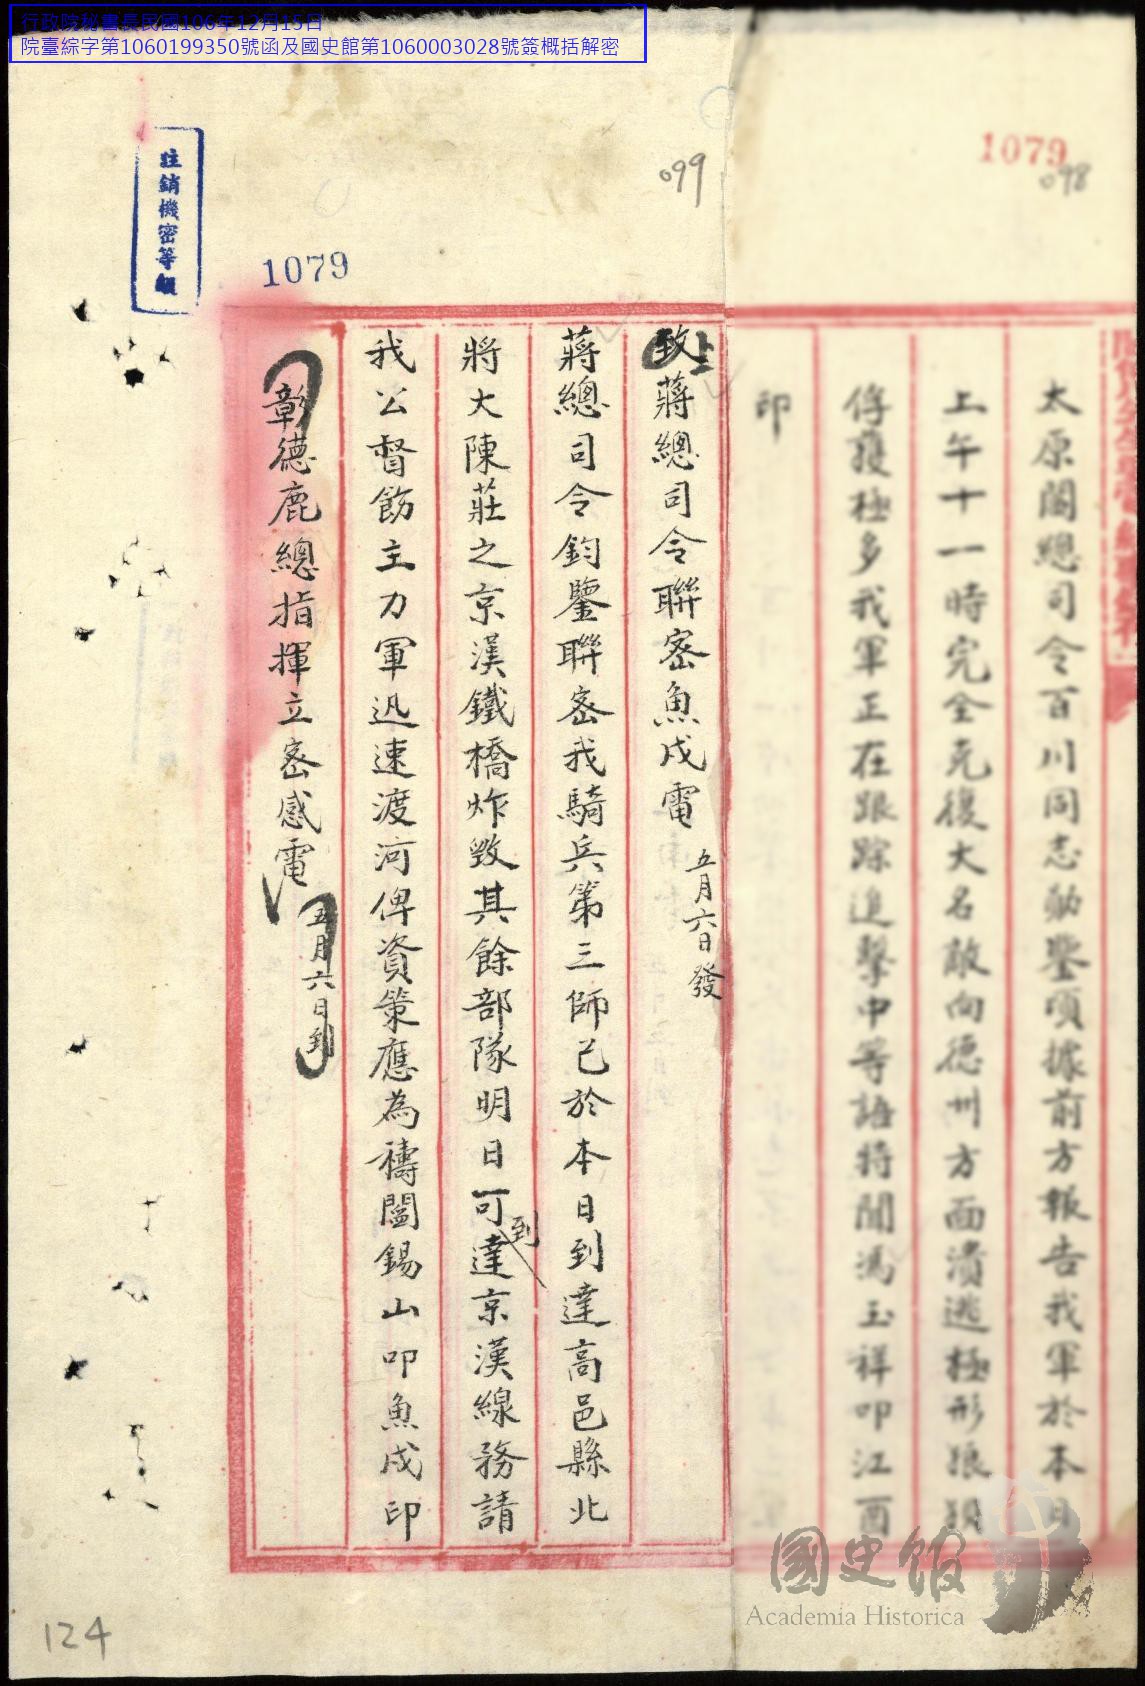 行政院秘書長民國106年12月15日
院臺綜字第1060199350號函及國史館第1060003028號簽概括解密
1079
098
太原閻總司令百川同志勛鑒頃據前方報告我軍於本日
上午十一時完全克復大名敵向德州方面潰逃極形狼狽
俘獲極多我軍正在跟踪追擊中等語特聞馮玉祥叩江酉
印
099
致蔣總司令聯密魚戌電 五月六日發
蔣總司令鈞鑒聯密我騎兵第三師已於本日到達高邑縣北
將大陳莊之京漢鐵橋炸毀其餘部隊明日可到達京漢線務請
我公督飭主力軍迅速渡河俾資策應為禱閻錫山叩魚戌印
彰德鹿總指揮立密感電 五月六日到
1079
註銷機密等級
124
國史館
Academia Historica